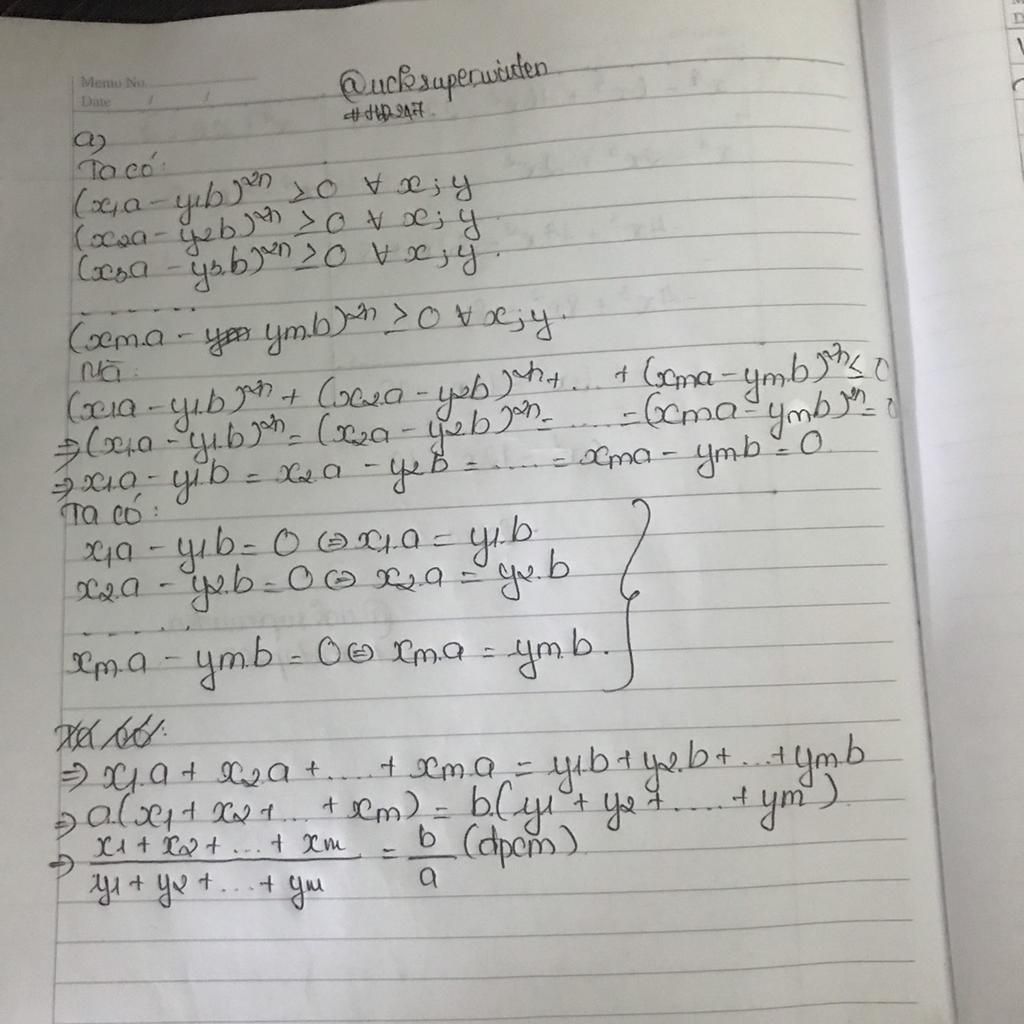 Memo No.
Date / /
#dtp247
a)
Ta có:
(x₁a - y₁b)²ⁿ ≥ 0 ∀ x; y
(x₂a - y₂b)²ⁿ ≥ 0 ∀ x; y
(x₃a - y₃.b)²ⁿ ≥ 0 ∀ x; y.
.........
(xm.a - ym.b)²ⁿ ≥ 0 ∀ x; y.
Mà:
(x₁a - y₁.b)²ⁿ + (x₂.a - y₂b)²ⁿ + ... + (xma - ym.b)²ⁿ ≤ 0
⇒ (x₁.a - y₁.b)²ⁿ = (x₂a - y₂b)²ⁿ = ..... = (xma - ymb)²ⁿ = 0
⇒ x₁a - y₁.b = x₂a - y₂b = ..... = xma - ymb = 0
Ta có:
x₁a - y₁.b = 0 ⇔ x₁.a = y₁.b
x₂.a - y₂.b = 0 ⇔ x₂.a = y₂.b
.........
xm.a - ym.b = 0 ⇔ xm.a = ym.b.
⇒ x₁.a + x₂.a + .... + xm.a = y₁.b + y₂.b + ... + ymb
⇒ a.(x₁ + x₂ + ... + xm) = b.(y₁ + y₂ + ..... + ym)
⇒ x₁ + x₂ + ... + xm / y₁ + y₂ + ... + ym = b / a (đpcm)